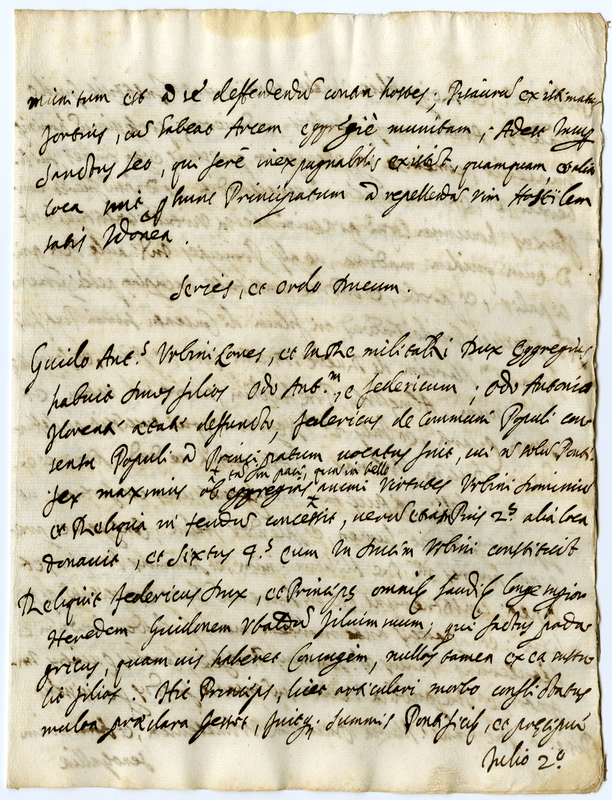 munitum est ad se deffendendũ contra hostes; Pisaurũ existimatur
fortius, cũ habeat Arcem eggregiè munitam; Adest
Sanctus Leo, qui ferè inexpugnabilis existit, quamquam et alia
loca hunc Principatum ad repellendũ vim Hostilem
satis Idonea.
Series, et Ordo Ducum.
Guido Ant.s Urbini Comes, et In re militari Dux Eggregius
habuit duos filios Odo Ant.m, et federicum; Odo Antonio
florenti aetate deffuncto, federicus de Communi Populi con
sensu Populi ad Principatum vocatus fuit, cui Ponti
fex maximus ob eggregias animi virtutes Urbini dominiũ
tam in pace, quam in bello
et Reliqua in feudum concessit, Pius 2.s alia loca
donavit, et Sixtus 4.s eum In ducem Urbini constituit
Reliquit federicus Dux, et Princeps omni laude
Heredem Guidonem Ubaldũ filium suum; qui factus poda
gricus, quamvis haberet Coniugem, nullos tamen ex ea
lit filios. Hic Princeps, licet articulari morbo conflictatus
multa praeclara gessit, fuitq; Summis Pontificib, et precipuè
Iulio 2.o